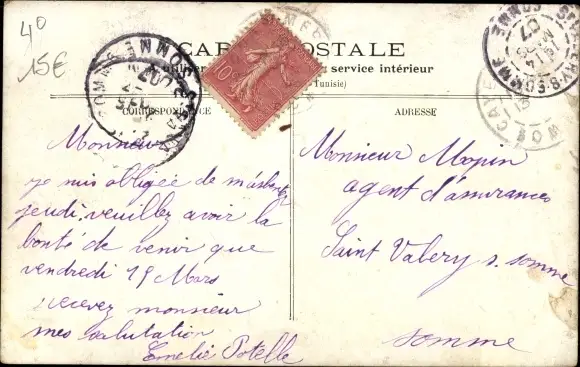 4°
15€
CARTE POSTALE
service intérieur
Tunisie)
CORRESPONDANCE
ADRESSE
10
Monsieur
je suis obligée de m'absenter
jeudi, veuillez avoir la
bonté de venir que
vendredi 19 Mars
recevez monsieur
mes salutation
Emelie Potelle
Monsieur Mopin
agent d'assurances
Saint Valery s. somme
somme